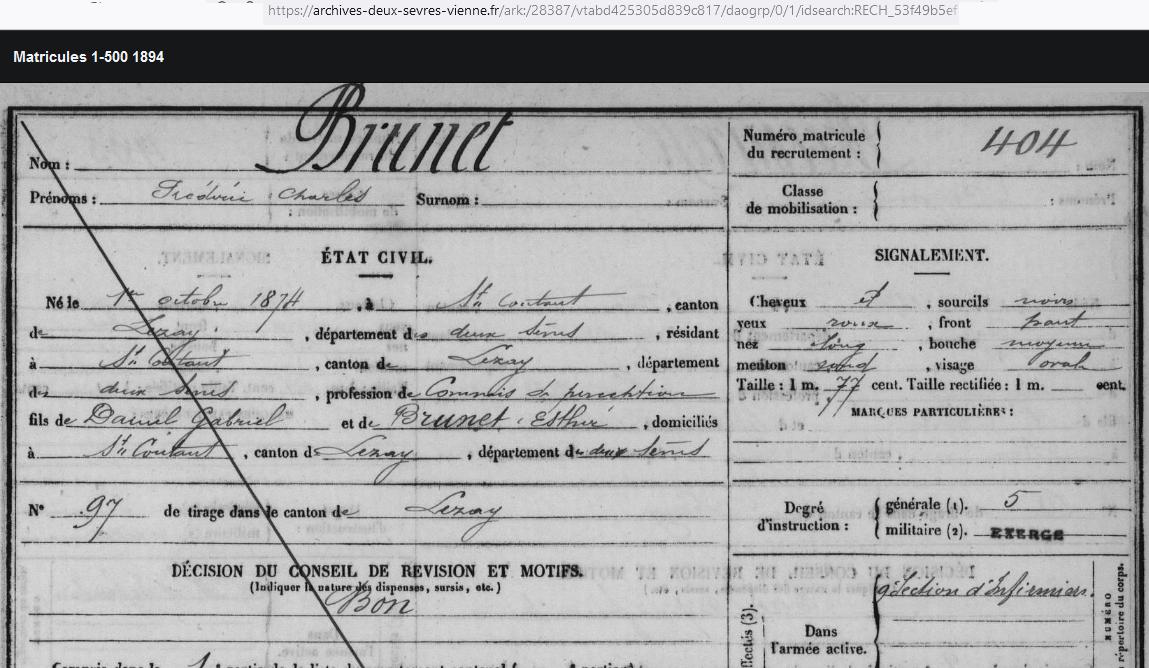 https://archives-deux-sevres-vienne.fr/ark:/28387/vtabd425305d839c817/daogrp/0/1/idsearch:RECH_53f49b5ef
Matricules 1-500 1894
Nom : Brunet
Prénoms : Frédéric Charles Surnom :
Numéro matricule du recrutement : 404
Classe de mobilisation :
ÉTAT CIVIL.
Né le 1er octobre 1874, à St Coutant, canton
de Lezay, département des deux sèvres, résidant
à St Coutant, canton de Lezay, département
des deux sèvres, profession de Commis de perception
fils de Daniel Gabriel et de Brunet Esther, domiciliés
à St Coutant, canton de Lezay, département des deux sèvres
N° 97 de tirage dans le canton de Lezay
SIGNALEMENT.
Cheveux et, sourcils noirs
yeux roux, front haut
nez long, bouche moyenne
menton rond, visage ovale
Taille : 1 m. 77 cent. Taille rectifiée : 1 m. cent.
MARQUES PARTICULIÈRES :
Degré d'instruction : générale (1). 5
militaire (2). EXERCÉ
DÉCISION DU CONSEIL DE REVISION ET MOTIFS.
(Indiquer la nature des dispenses, sursis, etc.)
Bon
Dans l'armée active. 9e Section d'Infirmiers.
NUMÉRO
répertoire du corps.